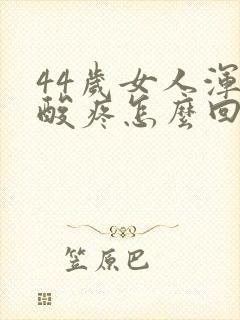 44歲女人渾
酸疼怎麼回
笠原巴